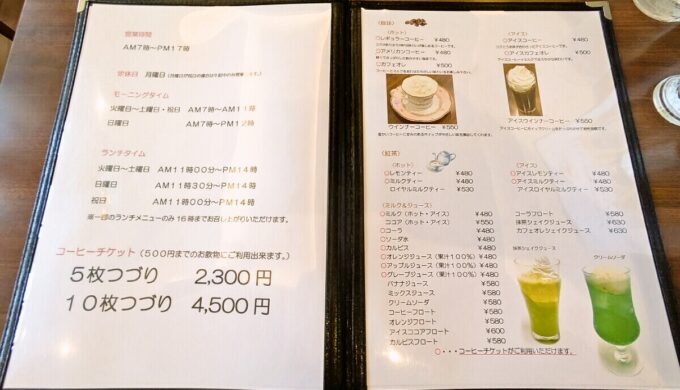 営業時間
AM7時～PM17時
定休日 月曜日
モーニングタイム
火曜日～土曜日・祝日 AM7時～AM11時
日曜日 AM7時～PM12時
ランチタイム
火曜日～土曜日 AM11時00分～PM14時
日曜日 AM11時30分～PM14時
祝日 AM11時00分～PM14時
※一部のランチメニューのみ16時までお召し上がりいただけます。
コーヒーチケット(500円までのお飲物にご利用出来ます。)
5枚つづり 2,300円
10枚つづり 4,500円
(ホット)
○レギュラーコーヒー ¥480
○アメリカンコーヒー ¥480
○カフェオレ ¥500
ウインナーコーヒー ¥550
(アイス)
○アイスコーヒー ¥480
○アイスカフェオレ ¥500
アイスウインナーコーヒー ¥550
(紅茶)
(ホット)
○レモンティー ¥480
○ミルクティー ¥480
ロイヤルミルクティー ¥480
(アイス)
○アイスレモンティー ¥480
○アイスミルクティー ¥480
アイスロイヤルミルクティー ¥480
(ミルク&ジュース)
○ミルク(ホット・アイス) ¥480
ココア(ホット・アイス) ¥550
○コーラ ¥480
○ソーダ水 ¥480
○カルピス ¥480
○オレンジジュース(果汁100%) ¥480
○アップルジュース(果汁100%) ¥480
○グレープジュース(果汁100%) ¥480
バナナジュース ¥580
ミックスジュース ¥580
クリームソーダ ¥580
コーヒーフロート ¥580
オレンジフロート ¥580
アイスココアフロート ¥600
カルピスフロート ¥580
コーラフロート ¥580
抹茶シェイクジュース ¥630
カフェオレシェイクジュース ¥630
抹茶シェイクジュース
クリームソーダ
○・・・コーヒーチケットがご利用いただけます。